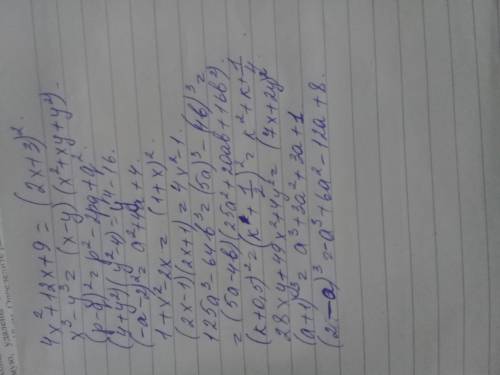 4x²+12x+9 = (2x+3)².
x³-y³ = (x-y)(x²+xy+y²).
(p-q)² = p²-2pq+q².
(4+y²)(y²-4) = y⁴-16.
(-a-2)² = a²+4a+4.
1+x²-2x = (1+x)².
(2x-1)(2x+1) = 4x²-1.
125a³-64b³ = (5a)³-(4b)³ =
= (5a-4b)(25a²+20ab+16b²).
(k+0,5)² = (k+1/2)² = k²+k+1/4
28xy+49x²+4y² = (7x+2y)²
(a+1)³ = a³+3a²+3a+1
(2-a)³ = -a³+6a²-12a+8.